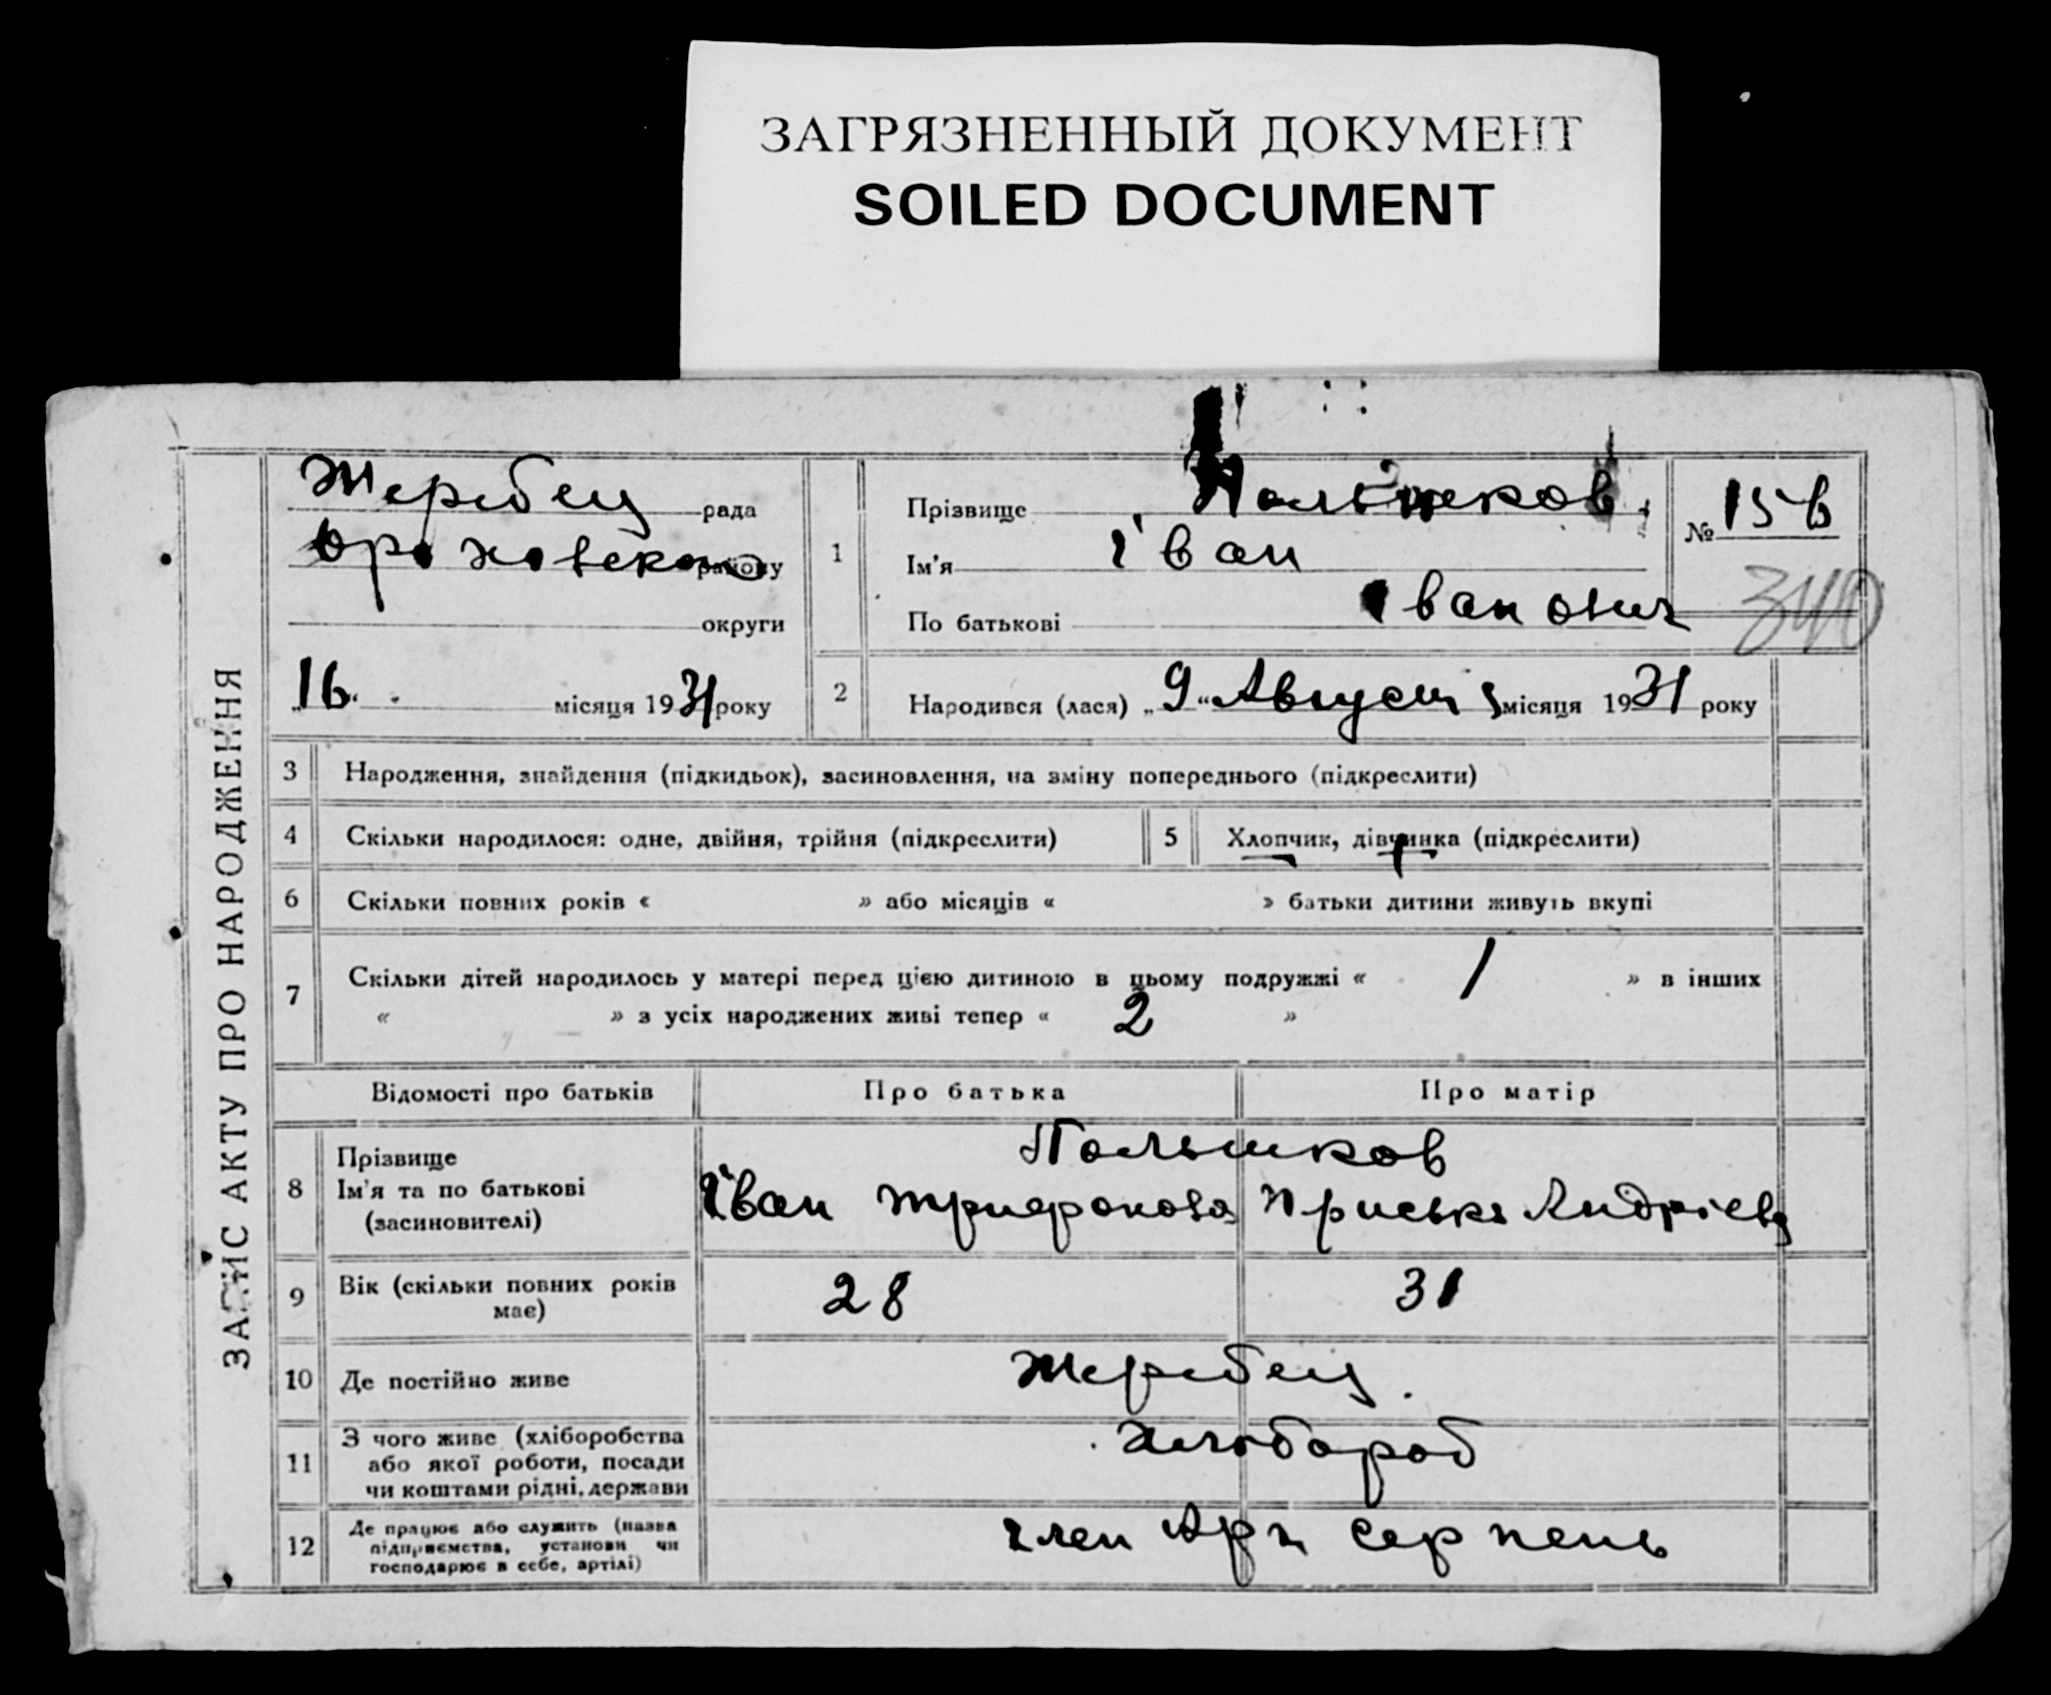 ЗАГРЯЗНЕННЫЙ ДОКУМЕНТ
SOILED DOCUMENT
ЗАПИС АКТУ ПРО НАРОДЖЕННЯ
Жеребец рада
району
округи
"16" місяця 1931 року
1 Прізвище Польшков
Ім'я Іван
По батькові Іванович
№ 156
340
2 Народився (лася) „9“ Август місяця 1931 року
3 Народження, знайдення (підкидьок), засиновлення, на зміну попереднього (підкреслити)
4 Скільки народилося: одне, двійня, трійня (підкреслити)
5 Хлопчик, дівчинка (підкреслити)
6 Скільки повних років « » або місяців « » батьки дитини живуть вкупі
7 Скільки дітей народилось у матері перед цією дитиною в цьому подружжі « 1 » в інших
« » з усіх народжених живі тепер « 2 »
Відомості про батьків Про батька Про матір
8 Прізвище Польшков
Ім'я та по батькові Іван Трифонова Приська Андрієва
(засиновителі)
9 Вік (скільки повних років має) 28 31
10 Де постійно живе Жеребец.
11 З чого живе (хліборобства
або якої роботи, посади
чи коштами рідні, держави
Хлібороб
12 Де працює або служить (назва
підприємства, установи чи
господарює в себе, артілі)
член Арт Серпень